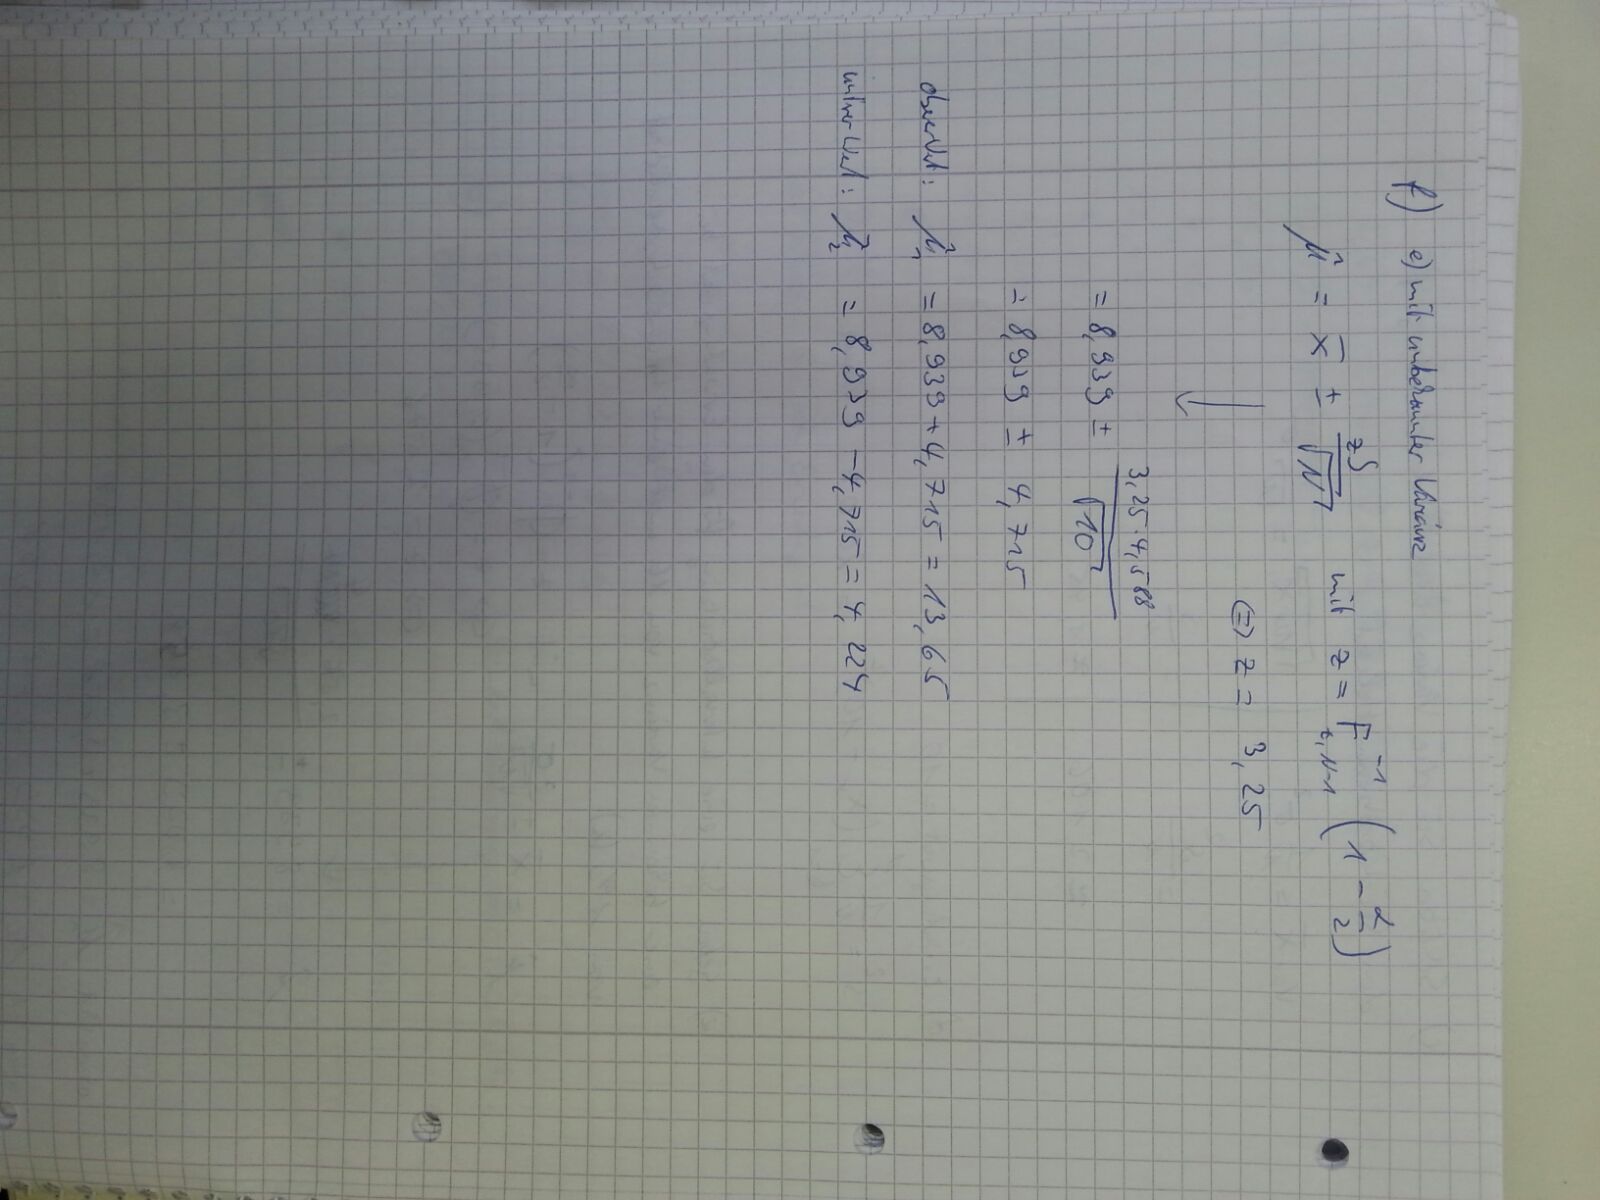 f) e) mit unbekannter Varianz
μ̂ = x̄ ± zS/√N mit z = F⁻¹ t,N-1 (1 - α/2)
⇔ z = 3,25
↓
= 8,939 ± 3,25·4,588/√10
= 8,939 ± 4,715
oberer Wert: μ̂₁ = 8,939 + 4,715 = 13,65
unterer Wert: μ̂₂ = 8,939 - 4,715 = 4,224